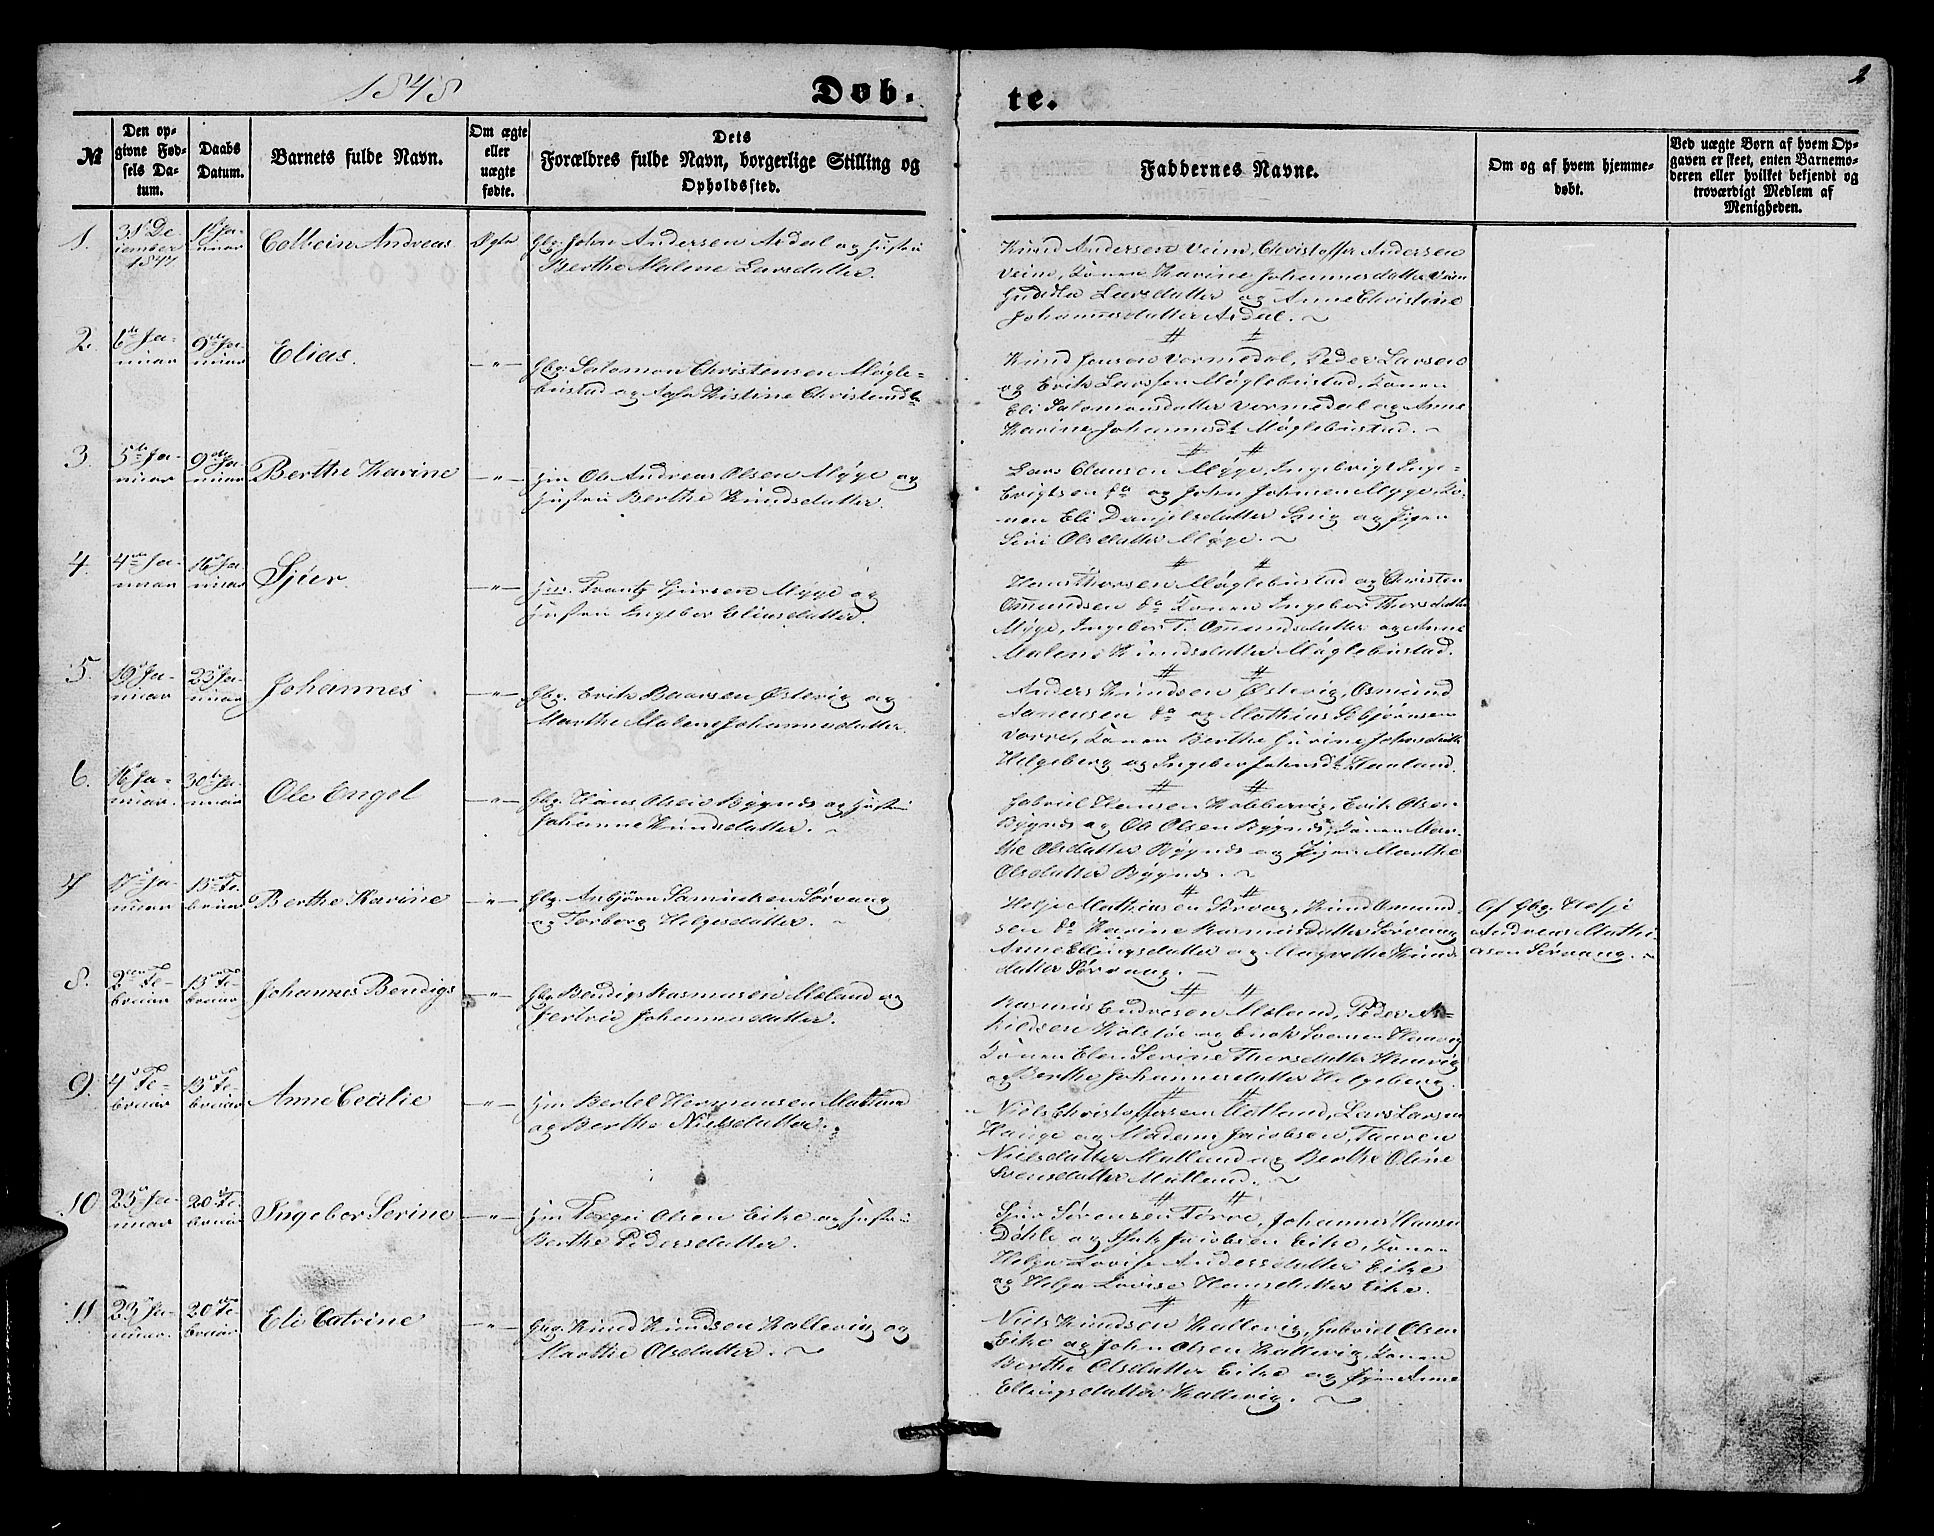 1848
Døb-
te.
2
№
Den op-
givne Fød-
sels Da-
tum.
Daabs
Datum.
Barnets fulde Navn.
Om ægte
eller
uægte
fødte.
Dets
Forældres fulde Navn, borgerlige Stilling og
Opholdssted.
Faddernes Navne.
Om og af hvem hjemme-
døbt.
Ved uægte Børn af hvem Op-
gaven er skeet, enten Barnemo-
deren eller hvilket bekjendt og
troværdigt Medlem af
Menigheden.
1.
1847
Andreas
Gbr. John Andersen Ardal og Hustru
Berthe Malene Larsdatter.
Knud Andersen Veim, Christoffer Andersen
Veim, Konen Karine Johannesdatter Veim
Larsdatter og Anne Christine
Johannesdatter Ardal.
2.
6te Ja-
nuar
9de Ja-
nuar
Elias.
Gbr. Salomon Christensen Møgle-
bustad og Kistine
Knud Jensen Vormedal, Peder Larsen
og Erik Larssen Møglebustad, Konen
Eli Salomonsdatter Vormedal og Anne
Karine Johannesdt Møglebustad.
3.
5te Ja-
nuar
9de Ja-
nuar
Berthe Karine
Hm Ole Andreas Olsen Myge og
Hustru Berthe Knudsdatter.
Lars Clausen Myge, Ingebrigt Inge-
brigtsen do og John Johnsen Myge, Ko-
nen Eli Danjelsdatter og Pigen
Siri Olsdatter Myge.
4.
4de Ja-
nuar
16 Ja-
nuar
Sjur
Hm. Frantz Sjursen Myge og
Hustru Ingebor Eliasdatter.
Hans Thorsen Møglebustad og Christen
Omundsen do Konen Ingebor Thorsdatter
Myge, Ingebor T. Omundsdatter og Anne
Malene Knudsdatter Møglebustad.
5.
19 Ja-
nuar
23 Ja-
nuar
Johannes
Gbr. Erik Baarsen Østevig og
Marthe Malene Johannesdatter.
Anders Knudsen Østevig, Osmund
Aanensen do og Mathias
Konen Berthe Gurine Johnsdatter
Helgeberg og Ingebor Johnsdt
6.
16 Ja-
nuar.
30te Ja-
nuar
Ole Engel
Gbr. Hans Olsen Bygnes og Hustru
Johanne Knudsdatter.
Gabriel Hansen Kobbervig, Erik Olsen
Bygnes og Ole Olsen Bygnes, Konen Mar-
the Olsdatter Bygnes og Pigen Marthe
Olsdatter Bygnes.
7
17 Ja-
nuar
13 Fe-
bruar
Berthe Karine
Gbr. Asbjørn Samuelsen Sørvaag
og Torborg Helgesdatter.
Helje Mathiassen Sørvaag, Knud Omund-
sen do Karine Rasmusdatter Sørvaag,
Anne Ellingsdatter og Magrethe Knuds-
datter Sørvaag.
Af Gbr. Helje
Andreas Mathi-
asen Sørvaag.
8.
2den Fe-
bruar
13 Fe-
bruar
Johannes Bendigs
Gbr. Bendigs Rasmusen Mæland og
Johannesdatter.
Rasmus Endresen Mæland, Peder As-
kildsen Kolstøe og
Konen Elen Serine Thorsdatter
og Berthe Johannesdatter Helgeberg
9.
4 Fe-
bruar
13 Fe-
bruar
Anne Cecilie
Hm Bertel Hermansen Matland
og Berthe Nielsdatter.
Niels Christoffersen Matland, Lars Larsen
Hauge og Jacobsen,
Nielsdatter Matland og Berthe Oline
Svensdatter Matland.
10
23 Ja-
nuar
20 Fe-
bruar
Ingebor Serine
Hm Torger Olsen Eike og Hustru
Berthe Pedersdatter.
Sjur Sørensen Johannes Hansen
Døhle og Isak Jacobsen Eike, Konen
Helga Lovise Andersdatter Eike
og Helga Lovise Hansdatter Eike.
11
23 Ja-
nuar.
20 Fe-
bruar
Eli Catrine
Gbr. Knud Knudsen Kallevig og
Marthe Olsdatter.
Niels Knudsen Kallevig, Gabriel Olsen
Eike og John Olsen Kallevig, Konen
Berthe Olsdatter Eike og Pigen Anne
Ellingsdatter Kallevig.